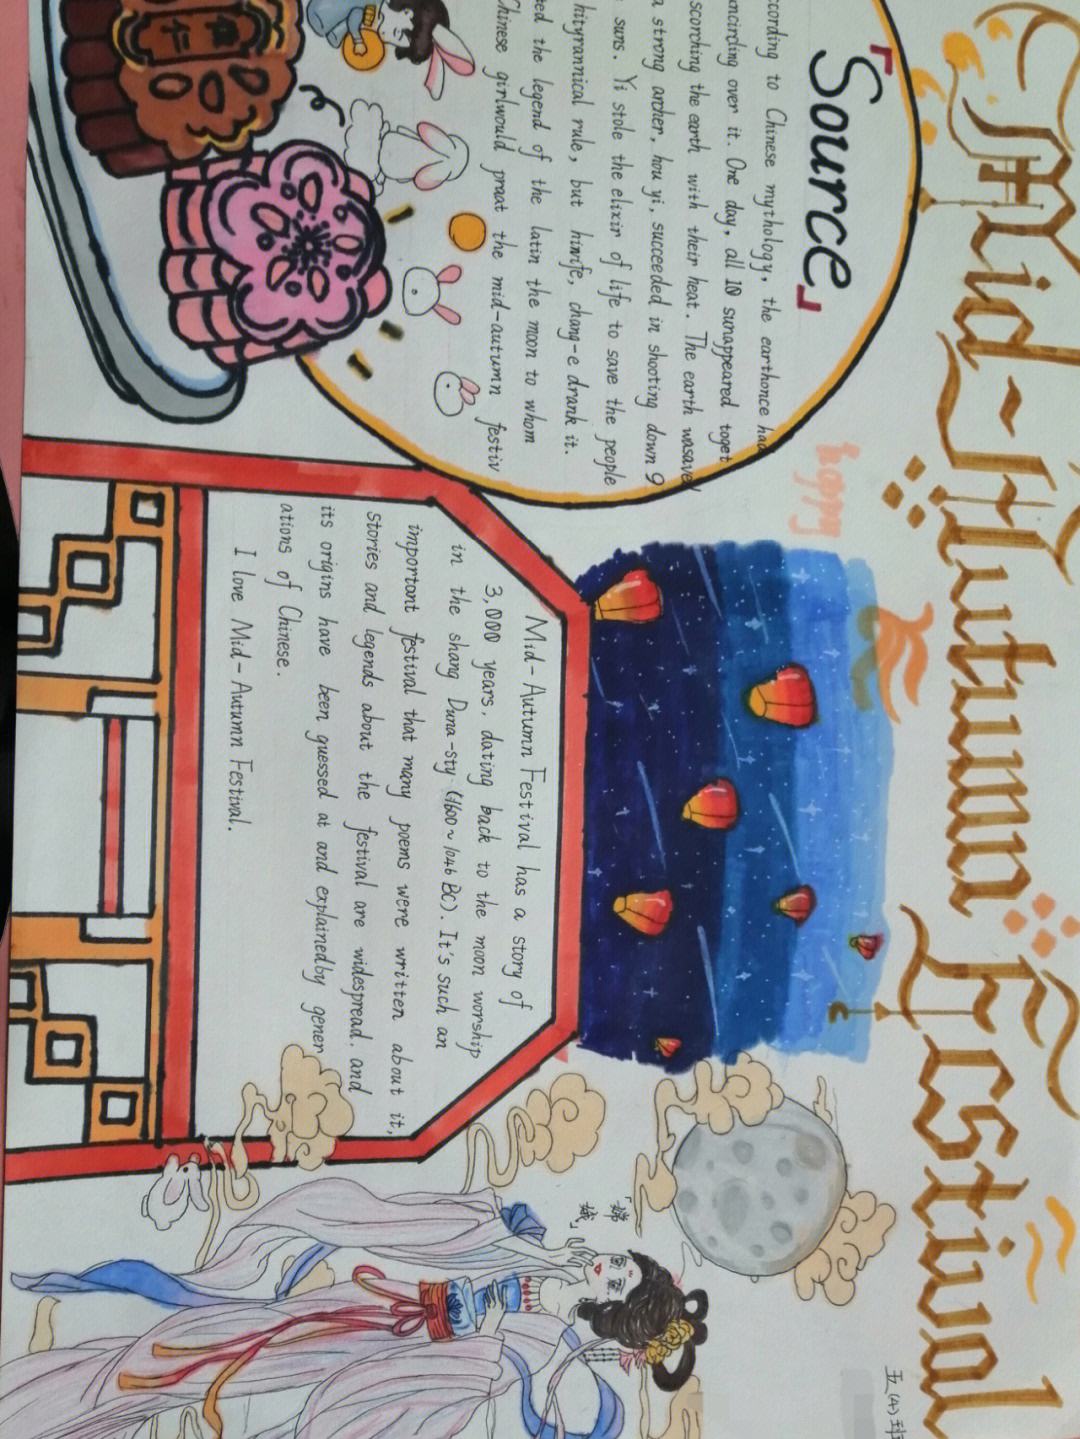 Mid-Autumn Festival
happy
「Source」
ccording to Chinese mythology, the earthonce had
ncirding over it. One day, all 10 sunappeared toget
scorching the earth with their heat. The earth wasave
a strong archer, hou yi, succeeded in shooting down 9
suns. Yi stole the elixir of life to save the people
hityrannical rule, but hiwife, chang-e drank it.
ed the legend of the latin the moon to whom
Chinese girlwould praat the mid-autumn festiv
Mid-Autumn Festival has a story of
3,000 years, dating back to the moon worship
in the shang Duna-sty (1600~1046 BC). It's such an
important festival that many poems were written about it,
stories and legends about the festival are widespread, and
its origins have been guessed at and explainedby gener
ations of Chinese.
I love Mid-Autumn Festival.
「嫦
娥」
五(4)班